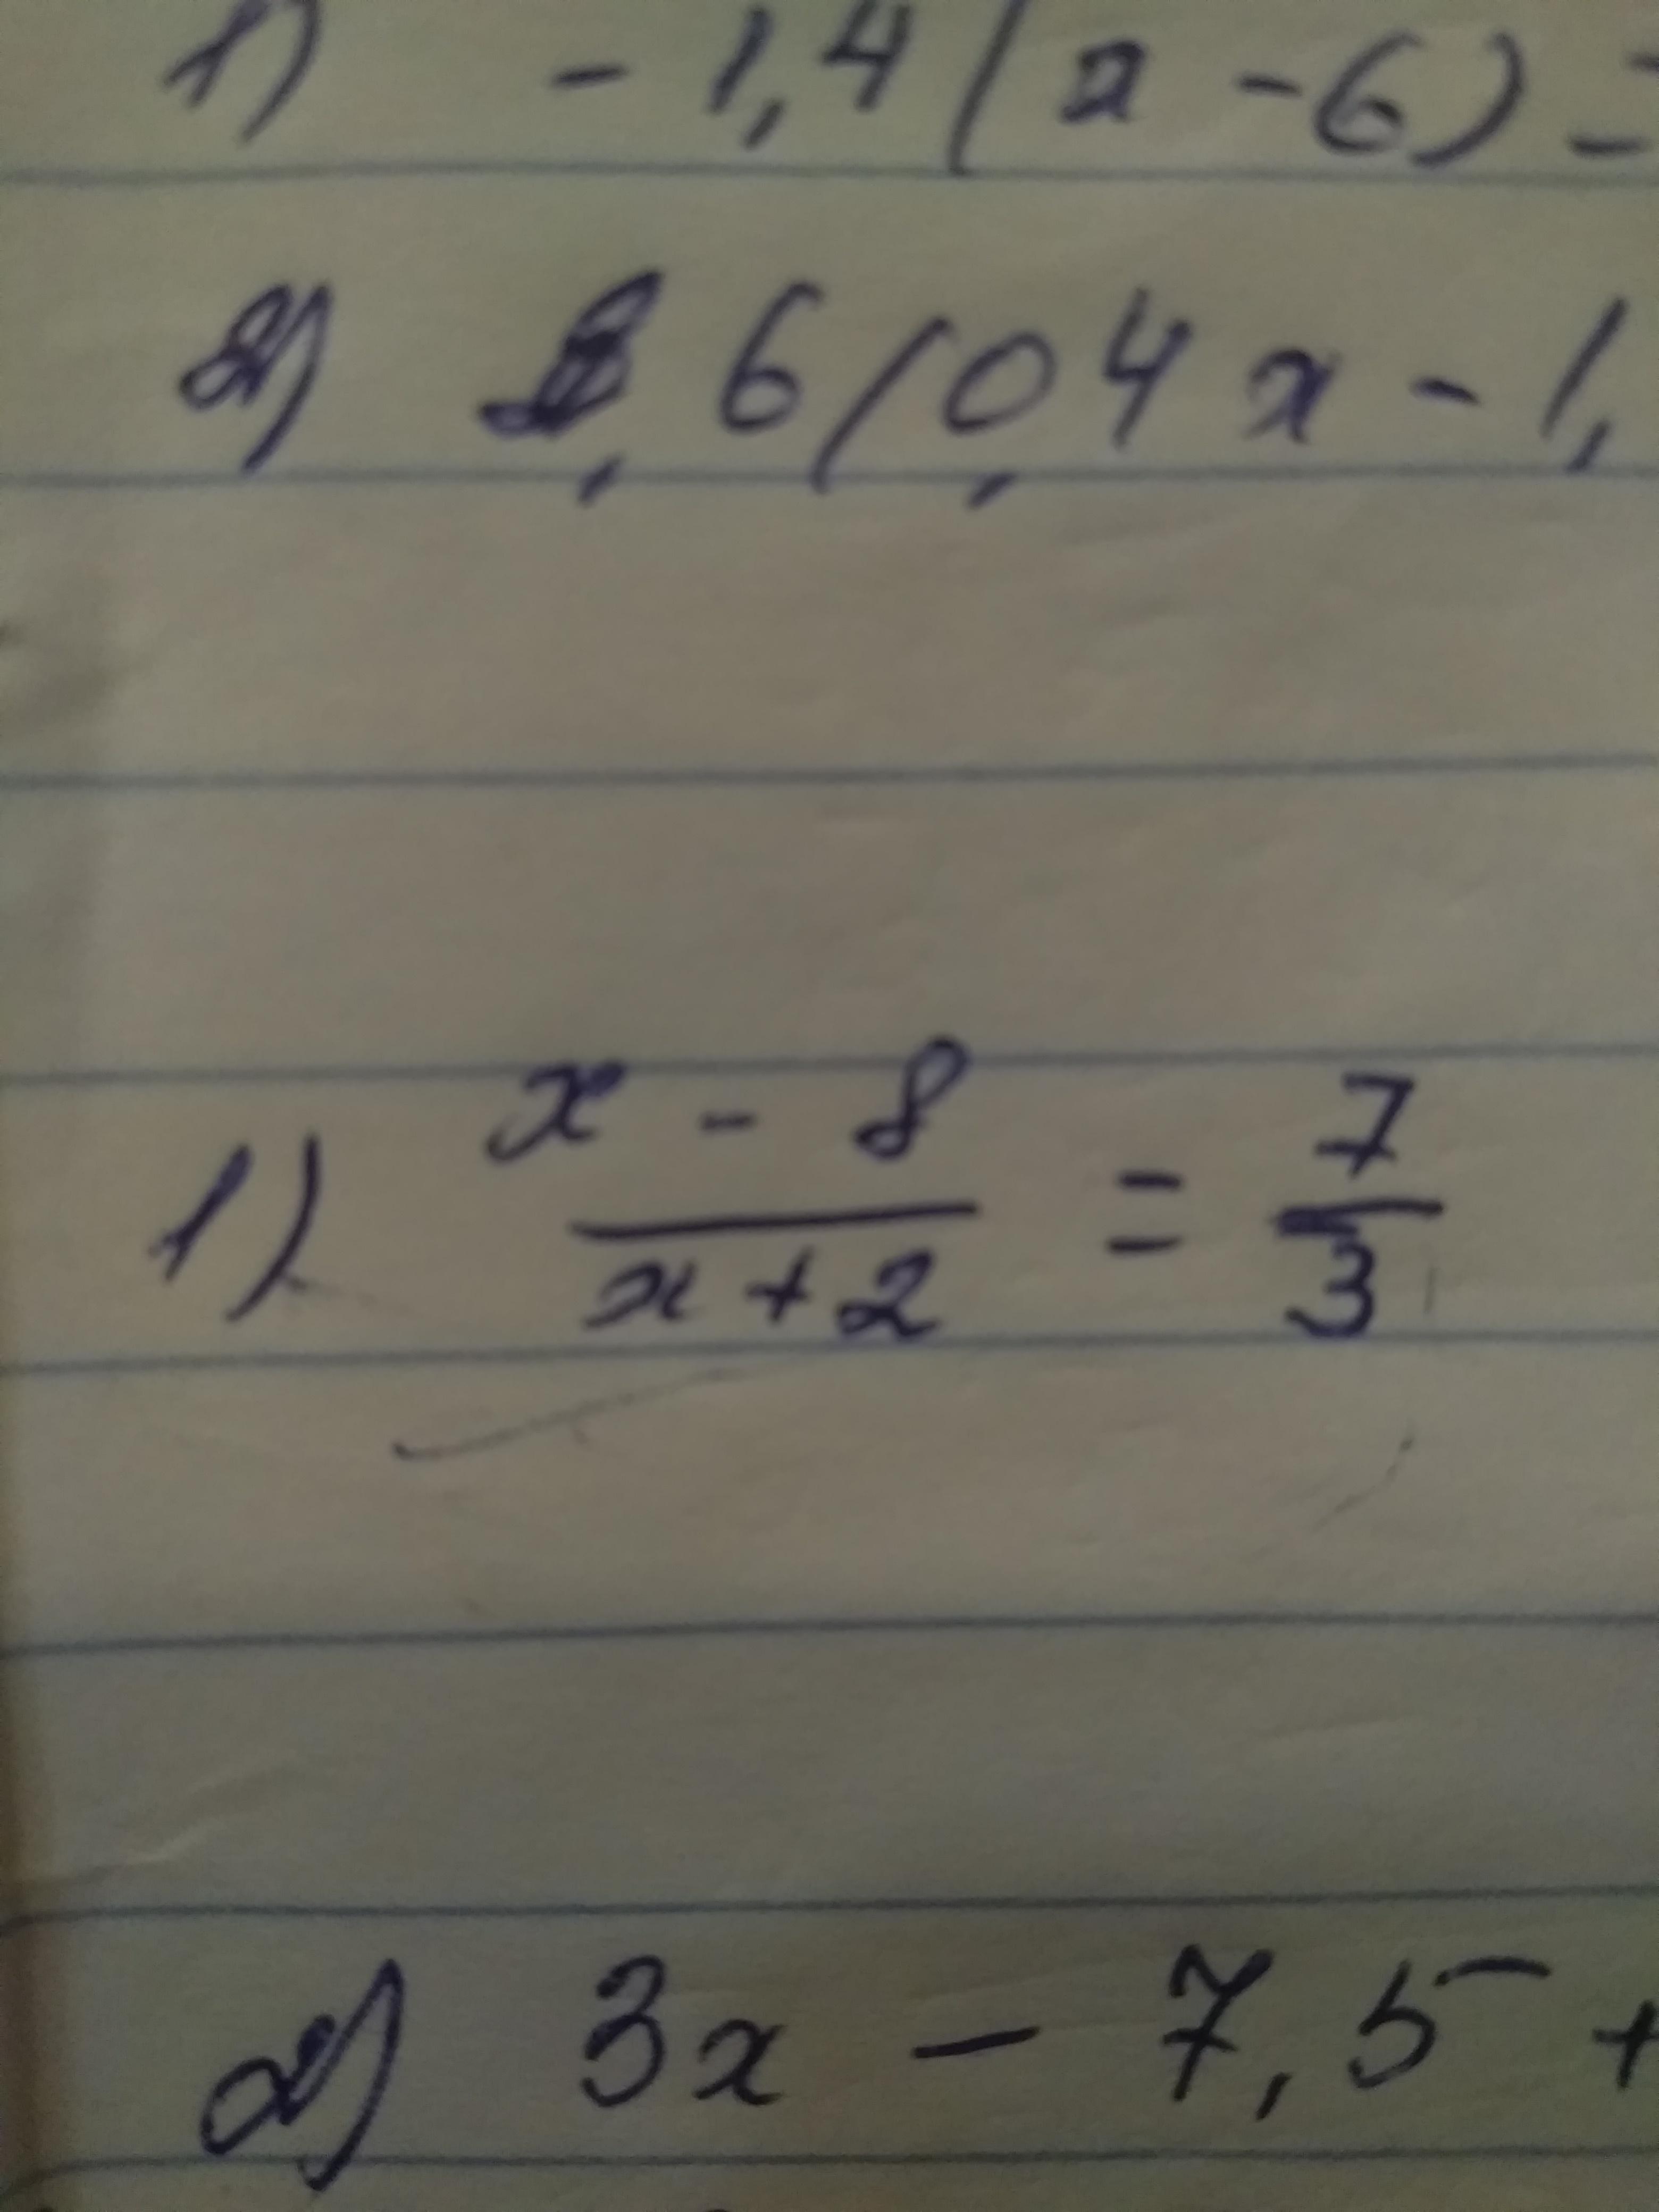 1) -1,4(x-6)=
2) 6(0,4x-1,
1) x-8/x+2 = 7/3
2) 3x-7,5+